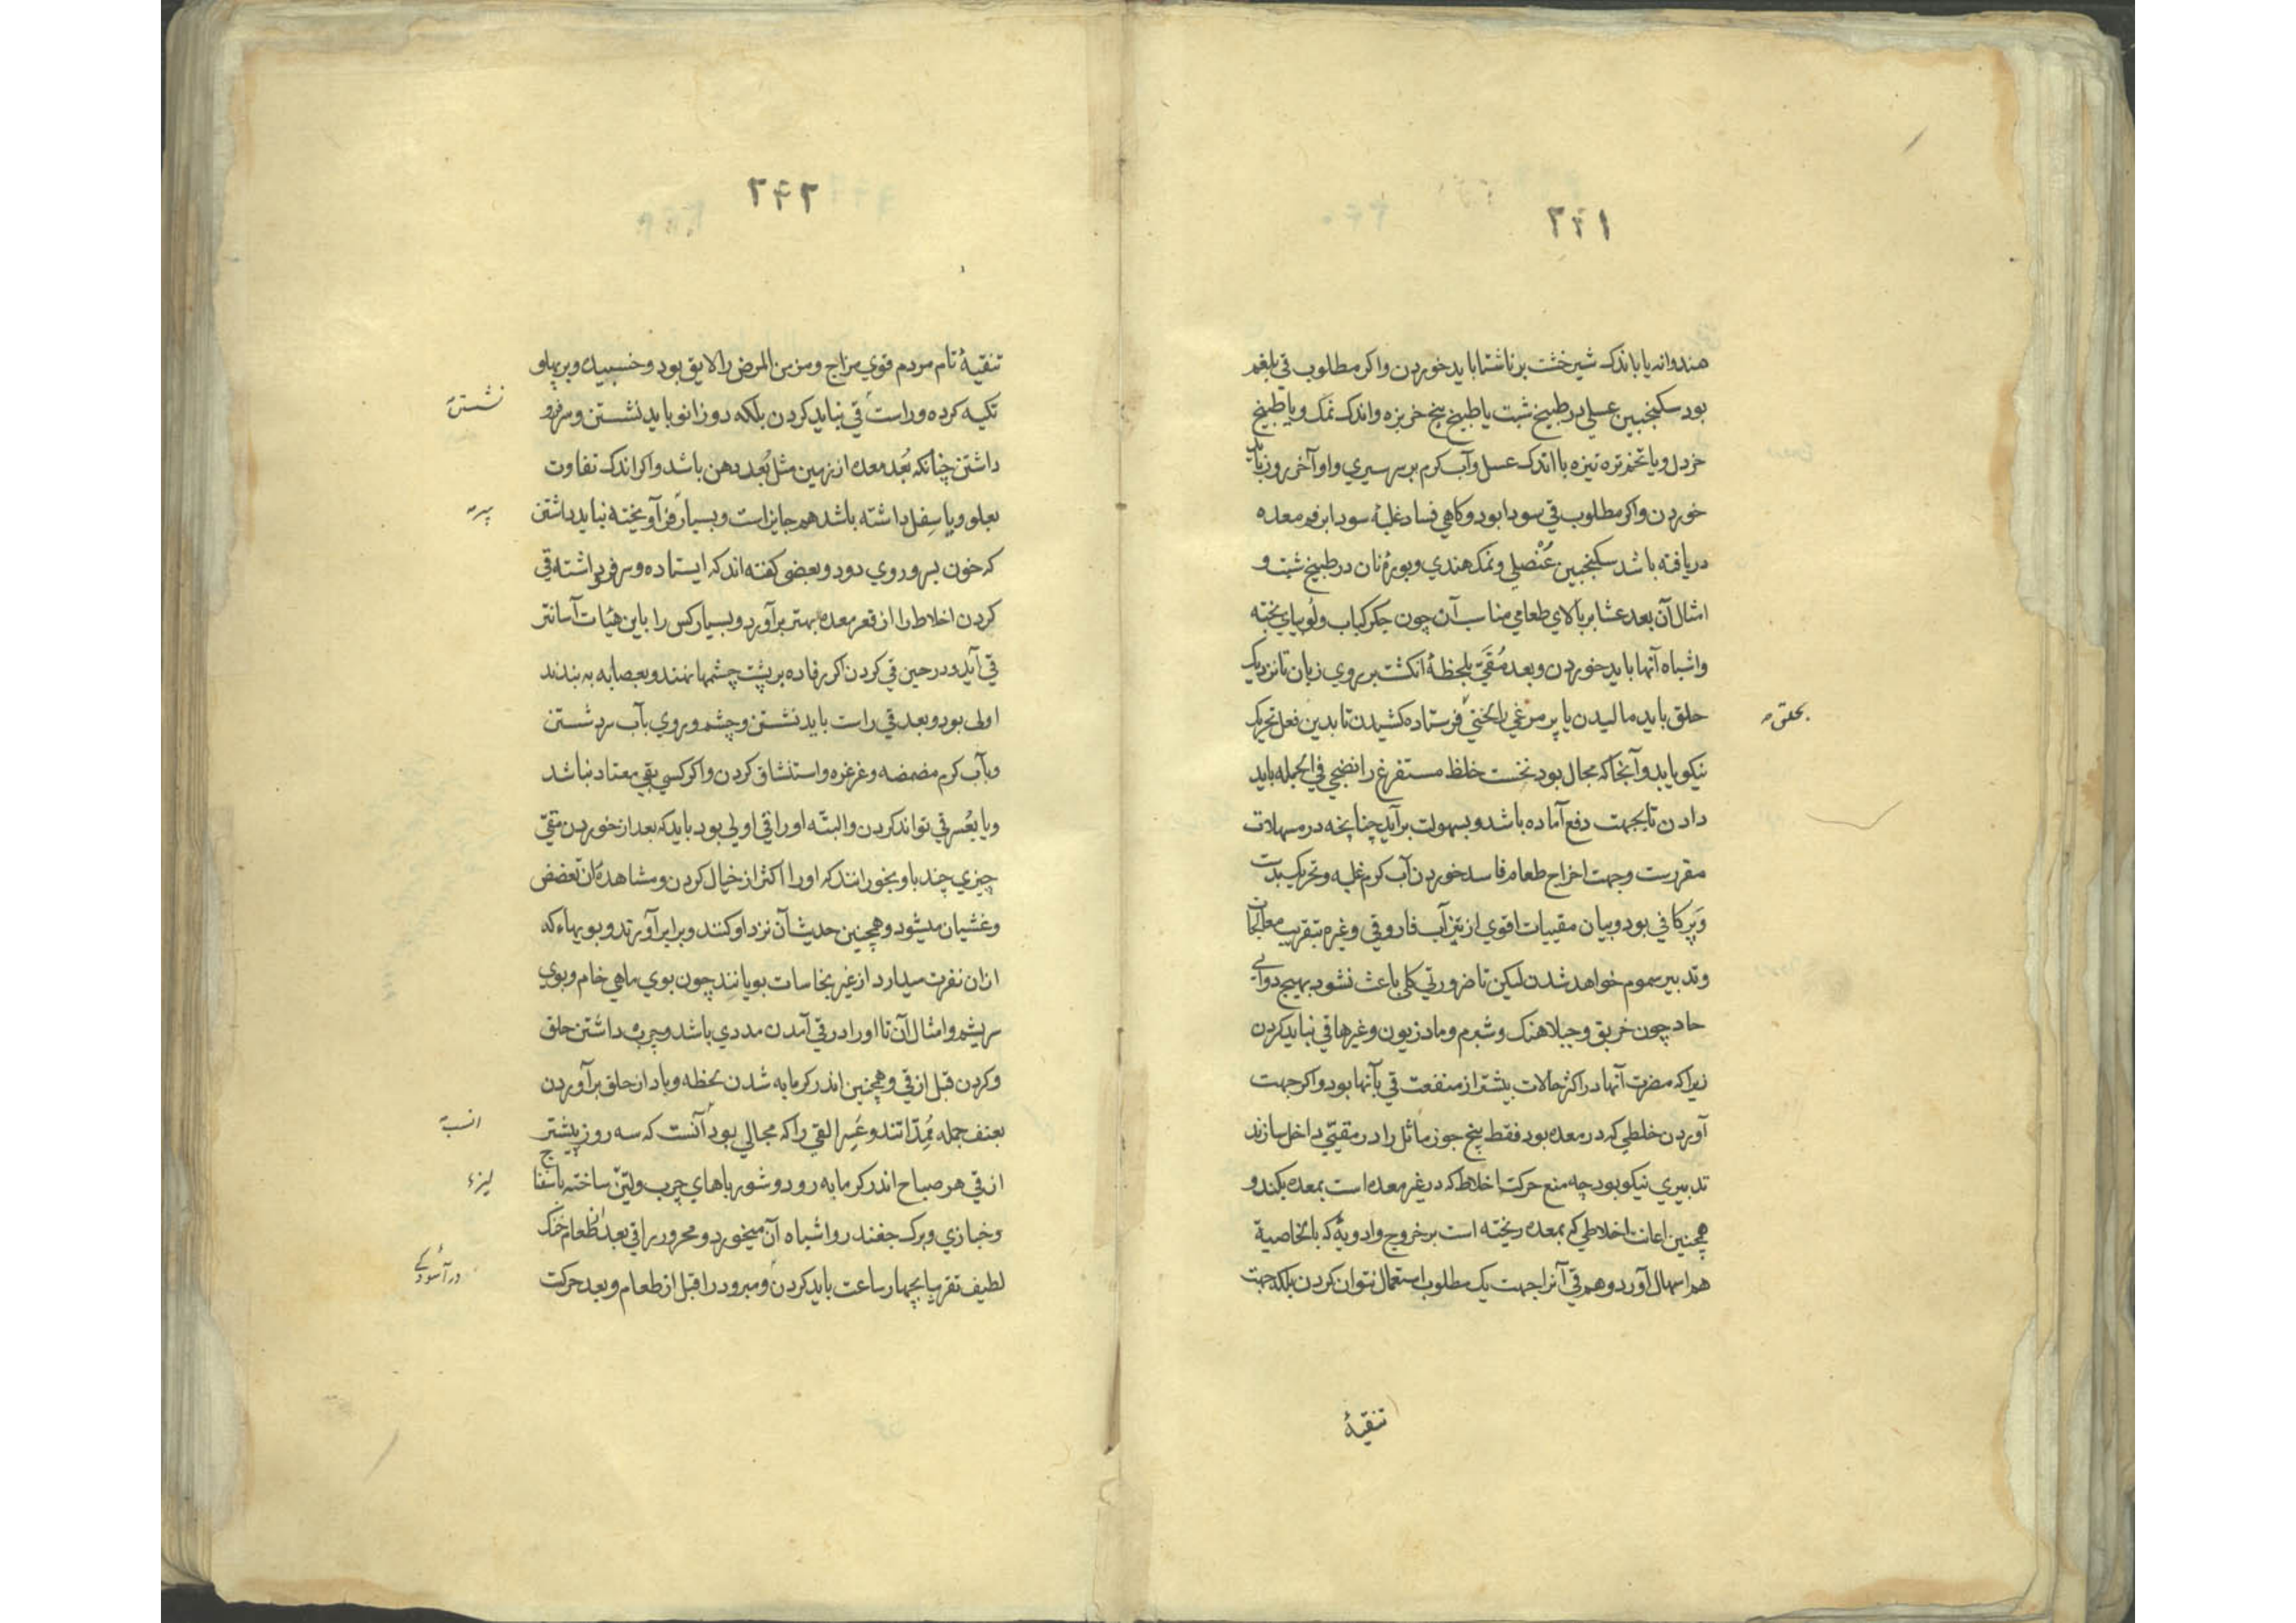 ۲۴۱
هندوانه یا باندک شیرخشت بر ناشتا باید خوردن واکر مطلوب قی بلغم
بود سکنجبین عسلی در طبیخ شبت یا طبیخ بیخ خربزه واندک نمک ویا طبیخ
خردل ویا تخم تره تیزه با اندک عسل وآب کرم بر سر سیری واو آخر روز باید
خوردن واکر مطلوب قی سودا بود وکاهی فساد غلبهٔ سودا بر فم معده
دریافته باشد سکنجبین عُنْصلی ونمک هندی وبورهٔ نان در طبیخ شبت و
امثال آن بعد عشا بر بالای طعامی مناسب آن چون جکر کباب ولُوبیای پخته
واشباه آنها باید خوردن وبعد مُقَیّ بلحظهٔ انکشت بر روی زبان تا نزدیک
حلق باید مالیدن یا پر مرغی را فرستاده کشیدن تا بدین فعل تحریک
بحلق
نیکو یابد وآنجا که مجال بود نخست خلط مستفرغ را نضجی فی الجمله باید
دادن تا بجهت دفع آماده باشد وبسهولت برآید چنانچه در مسهلات
مقررست وجهت اخراج طعام فاسد خوردن آب کرم غلبه وتحریک بدست
وَپَر کافی بود وبیان مقییات اقوی از تیزآب فاروقی وغیره بتقریب معالجات
وتدبیر سموم خواهد شدن لیکن تا ضرورتی کلی باعث نشود بهیچ دوائی
حاد چون خربق وجبلاهنک وشبرم ومادزیون وغیرها قی نباید کردن
زیرا که مضرت آنها در اکثر حالات بیشتر از منفعت قی بآنها بود واکر جهت
آوردن خلطی که در معده بود فقط پنج جوز ماثل را در مقیّئی داخل سازند
تدبیری نیکو بود چه منع حرکت اخلاط که در غیر معده است بمعده بکند و
همچنین اعانت اخلاطی که بمعده ریخته است بر خروج وادویهٔ که بالخاصیة
هم اسهال آورد وهم قی آنرا جهت یک مطلوب استعمال نتوان کردن بلکه جهت
تنقیهٔ
۲۴۲
تنقیهٔ تام مردم قوی مزاج ومزمن المرض را لایق بود وخسبیده وبر پهلو
تکیه کرده وراست قی نباید کردن بلکه دو زانو باید نشستن وسر فرو
نشستن
داشتن چنانکه بُعد معده از زمین مثل بُعد دهن باشد واکر اندک تفاوت
بعلو ویا سِفل داشته باشد هم جایز است وبسیار فرآویخته نباید داشتن
که خون بسر وروی دود وبعضی کفته اند که ایستاده وسر فرو داشته قی
کردن اخلاط را از قعر معده بهتر برآورد وبسیار کس را باین هیئات آسانتر
قی آید ودر حین قی کردن اکر رفاده بر پشت چشمها نهند وبعصابه به بندند
اولی بود وبعد قی راست باید نشستن وچشم وروی بآب سرد شستن
وبآب کرم مضمضه وغرغره واستنشاق کردن واکر کسی بقی معتاد نباشد
ویا بعُسر قی تواند کردن والبتّه او را قی اولی بود باید که بعد از خوردن مقیّ
چیزی چند باو بخورانند که او را اکثر از خیال کردن ومشاهدهٔ آن
وغشیان میشود وهمچنین حدیث آن نزد او کنند وبرابر آورند وبویهاء که
ازان نفرت میدارد از غیر نجاسات بویانند چون بوی ماهی خام وبوی
سریشم وامثال آن تا او را در قی آمدن مددی باشد وچرب داشتن حلق
وکردن قبل از قی وهمچنین اندر کرمابه شدن بلحظه وباد از حلق برآوردن
بعنف جمله مُمِدّاتند وعَسِر القی را که مجالی بود آنست که سه روز پیشتر
انسبت
از قی هر صباح اندر کرمابه رود وشورباهای چرب ولیّن ساخته باسفناج
وخبازی وبرک جغندر واشباه آن میخورد ومحرور را قی بعد از طعام خنک
لطیف تقریبا بچهار ساعت باید کردن ومبرود را قبل از طعام وبعد حرکت
در آسودکی